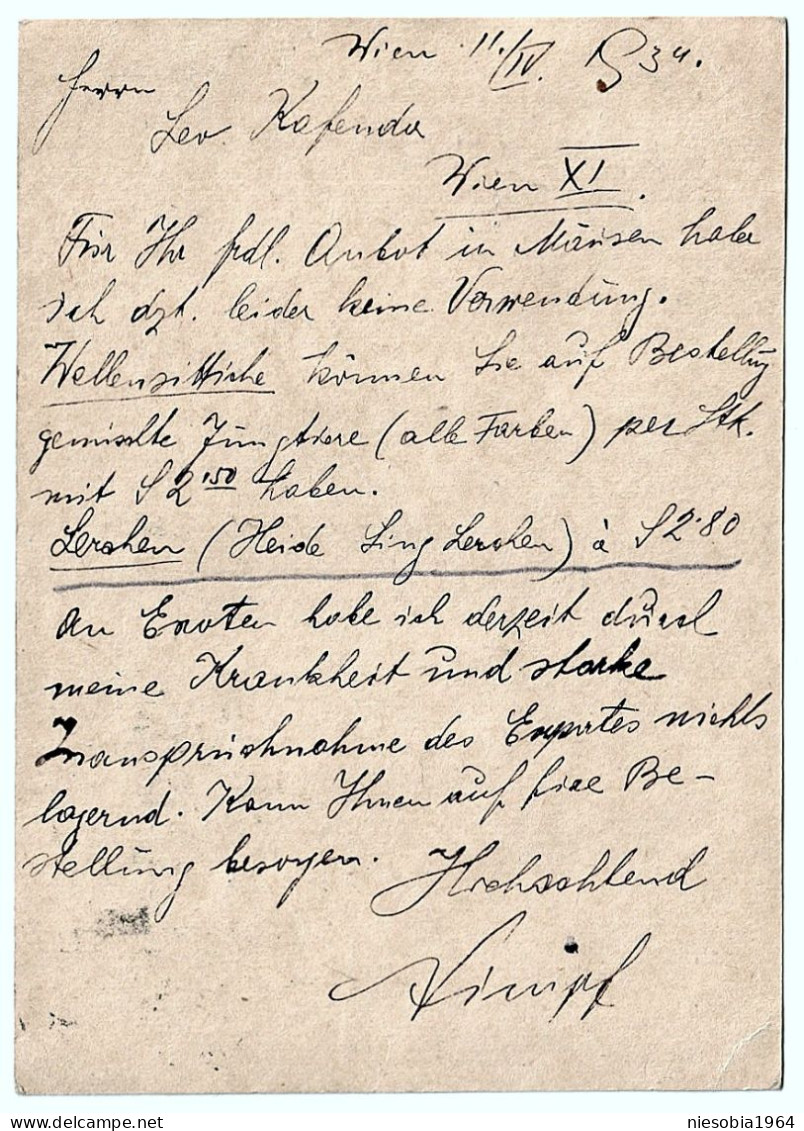 Wien 11./IV. 1934.
Herrn
Leo Kafenda
Wien XI.
Für Ihr frdl. Anbot in Mäusen habe
ich dzt. leider keine Verwendung.
Wellensittiche können Sie auf Bestellung
gemischte Jungtiere (alle Farben) per Stk.
mit S 2.50 haben.
Lerchen (Heide Sing Lerchen) à S 2.80
An Exoten habe ich derzeit durch
meine Krankheit und starke
Inanspruchnahme des Exportes nichts
lagernd. Kann Ihnen auf fixe Be-
stellung besorgen.
Hochachtend
delcampe.net
niesobia1964